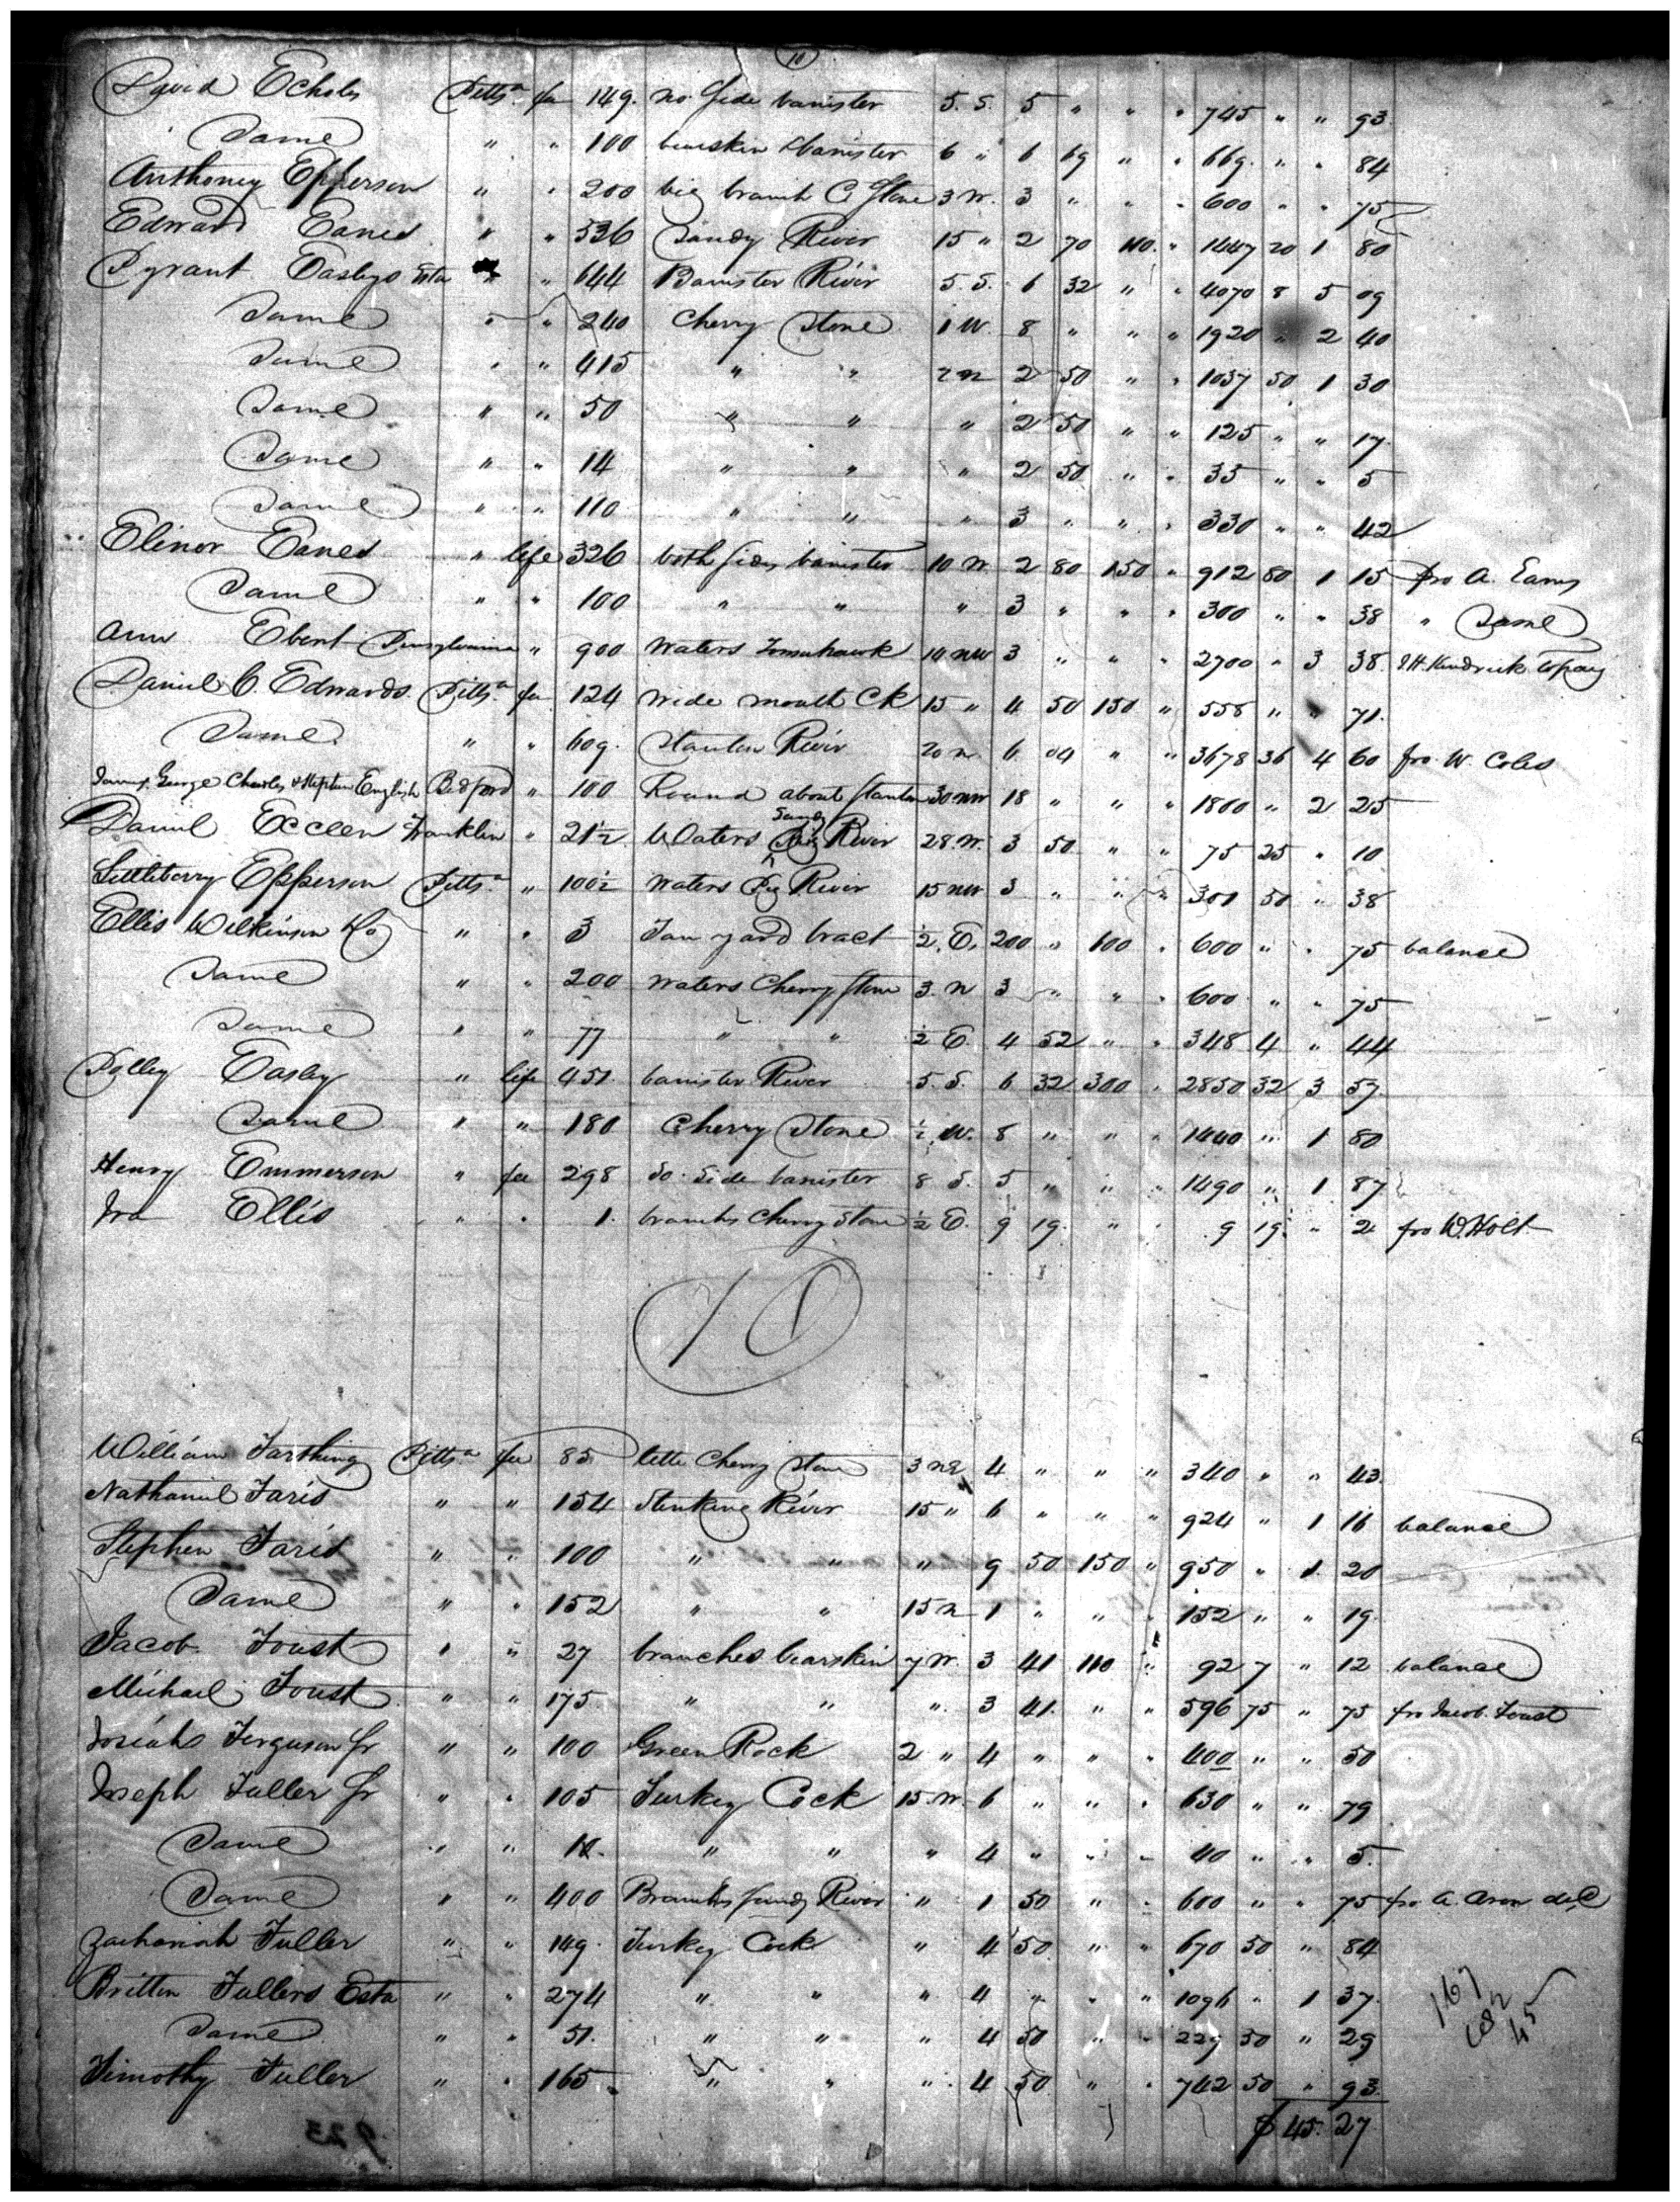 10
David Echols Pittsa fee 149. no. Side banister 5. S. 5 " " " 745 " " 93
Same " " 100 bearskin & banister 6 " 6 69 " " 669. " " 84
Anthoney Epperson " " 200 big branch C Stone 3 W. 3 " " " 600 " " 75
Edward Eanes " " 536 Sandy River 15 " 2 70 110. " 1447 20 1 80
Pyrant Easleys Esta " " 644 Banister River 5. S. 6 32 " " 4070 8 5 09
Same " " 240 Cherry Stone 1 W. 8 " " " 1920 " 2 40
Same " " 415 " " 2 n 2 50 " " 1037 50 1 30
Same " " 50 " " " 2 50 " " 125 " " 17
Same " " 14 " " " 2 50 " " 35 " " 5
Same " " 110 " " " 3 " " " 330 " " 42
Elinor Eanes " life 326 both sides banister 10 W. 2 80 150 " 912 80 1 15 fro A. Eanes
Same " " 100 " " " 3 " " " 300 " " 38 " Same
Ann Ebert Pensylvania " 900 Waters Tomahawk 10 nw 3 " " " 2700 " 3 38. Kendrick to pay
Daniel C. Edwards Pittsa fee 124 Wide mouth Ck 15 " 4 50 150 " 558 " " 71.
Same " " 609. Stanton River 20 n. 6 04 " " 3678 36 4 60 fro W. Coles
James, George Charles & Stephen English Bedford " 100 Round about Stanton 30 nw 18 " " " 1800 " 2 25
Daniel Eccen Franklin " 21½ Waters Sandy River 28. W. 3 50 " " 75 25 " 10
Littleberry Epperson Pittsa " 100½ Waters Pig River 15 nw 3 " " " 301 50 " 38
Ellis Wilkinson & Co " " 3 Tan yard tract ½. E. 200 " 100 " 600 " " 75 balance
Same " " 200 Waters Cherry Stone 3. n 3 " " " 600 " " 75
Same " " 77 " " ½ E. 4 52 " " 348 4 " 44
Polley Easley " life 451. banister River 5. S. 6 32 300 " 2850 32 3 57
Same " " 180 Cherry Stone ½ W. 8 " " " 1440 " 1 80
Henry Emmerson " fee 298 So. Side banister 8 S. 5 " " " 1490 " 1 87
Ira Ellis " " 1. branches Cherry Stone ½ E. 9 19. " " 9 19 " 2 fro W. Holt
10
William Farthing Pittsa fee 85 little Cherry Stone 3 ne 4 " " " 340 " " 43
Nathaniel Faris " " 154 Stinking River 15 " 6 " " " 924 " 1 16 balance
Stephen Faris " " 100 " " " 9 50 150 " 950 " 1. 20
Same " " 152 " " 15 n 1 " " " 152 " " 19.
Jacob Foust " " 27 branches bearskin 7 W. 3 41 110 " 92 7 " 12 balance
Michael Foust " " 175 " " " 3 41. " " 596 75 " 75 fro Jacob Foust
Josiah Ferguson Jr " " 100 Green Rock 2 " 4 " " " 400 " " 50
Joseph Fuller Jr " " 105 Turkey Cock 15. W. 6 " " " 630 " " 79
Same " " 10. " " " 4 " " " 40 " " 5.
Same " " 400 Branches Sandy River " 1 50 " " 600 " " 75 fro A. Aron decd
Zachariah Fuller " " 149. Turkey Cock " 4 50. " " 670 50 " 84
Britten Fullers Esta " " 274 " " " 4 " " " 1096 " 1 37.
Same " " 51. " " " 4 50 " " 229 50 " 29
Timothy Fuller " " 165 " " " 4 50 " " 742 50 " 93.
167
682
45
$ 45. 27